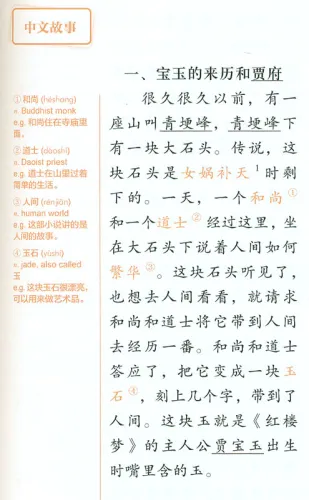 中文故事
① 和尚 (héshang)
n. Buddhist monk
e.g. 和尚住在寺庙里面。
② 道士 (dàoshì)
n. Daoist priest
e.g. 道士在山里过着
简单的生活。
③ 人间 (rénjiān)
n. human world
e.g. 这部小说讲的是
人间的故事。
④ 玉石 (yùshí)
n. jade, also called
玉
e.g. 这块玉石很漂亮，
可以用来做艺术品。
一、宝玉的来历和贾府
很久很久以前，有一
座山叫青埂峰，青埂峰下
有一块大石头。传说，这
块石头是女娲补天1时剩
下的。一天，一个和尚①
和一个道士②经过这里，坐
在大石头下说着人间如何
繁华③。这块石头听见了，
也想去人间看看，就请求
和尚和道士将它带到人间
去经历一番。和尚和道士
答应了，把它变成一块玉
石④，刻上几个字，带到了
人间。这块玉就是《红楼
梦》的主人公贾宝玉出生
时嘴里含的玉。